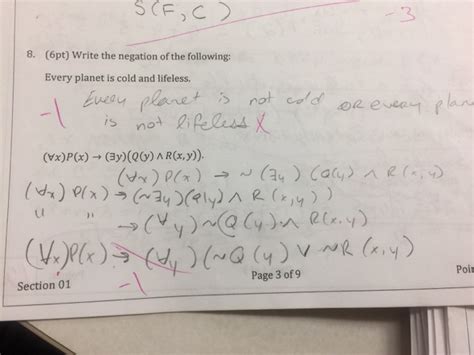 S(F, C)
-3
8. (6pt) Write the negation of the following:
Every planet is cold and lifeless.
-1 Every planet is not cold OR every plan
is not lifeless X
(∀x)P(x) → (∃y)(Q(y) ∧ R(x,y)).
(∀x) P(x) → ~ (∃y) (Q(y) ∧ R(x,y)
(∀x) P(x) → (~∃y) (Q(y) ∧ R(x,y))
" " → (∀y) ~(Q(y) ∧ R(x,y)
(∀x)P(x) → (∀y) (~Q(y) ∨ ~R(x,y)
-1
Section 01
Page 3 of 9
Poi